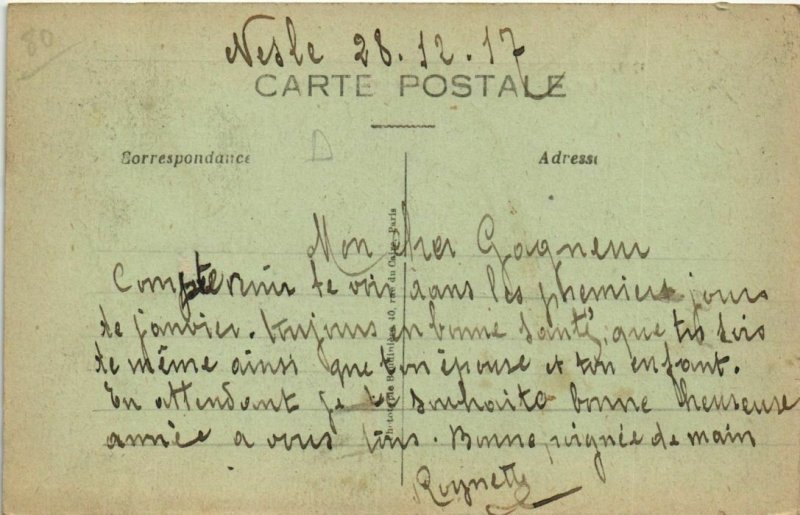 80
Nesle 28.12.17
CARTE POSTALE
Correspondance
D
Adresse
Photo-typie Baudinière 40, rue du Caire, Paris
Mon cher Gagneur
Compte venir te voir dans les phemiers jours
de janvier. toujours en bonne santé, que tu sois
de même ainsi que ton épouse et ton enfant.
En attendant je te souhaite bonne heureuse
année a vous tous. Bonne poignée de main